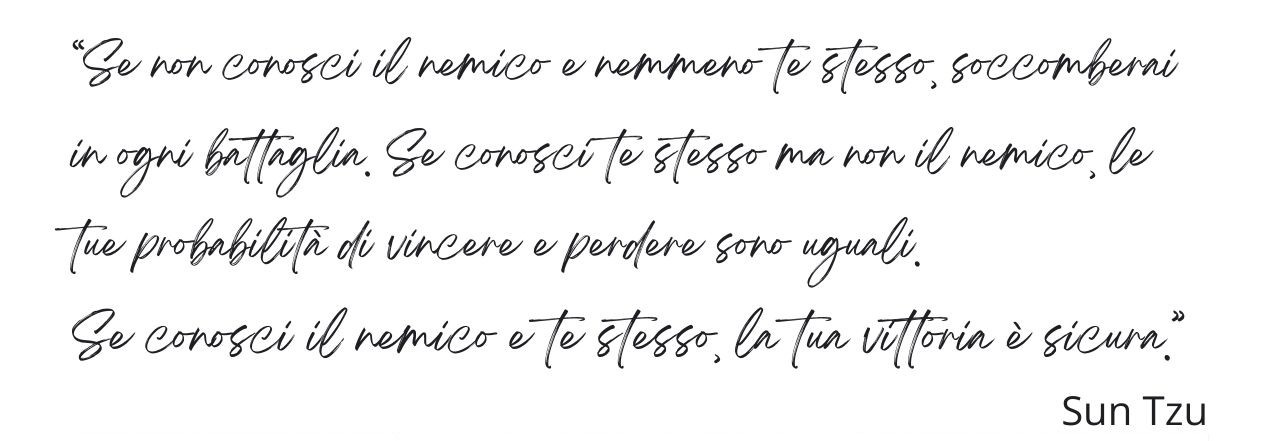 “Se non conosci il nemico e nemmeno te stesso, soccomberai
in ogni battaglia. Se conosci te stesso ma non il nemico, le
tue probabilità di vincere e perdere sono uguali.
Se conosci il nemico e te stesso, la tua vittoria è sicura.”
Sun Tzu